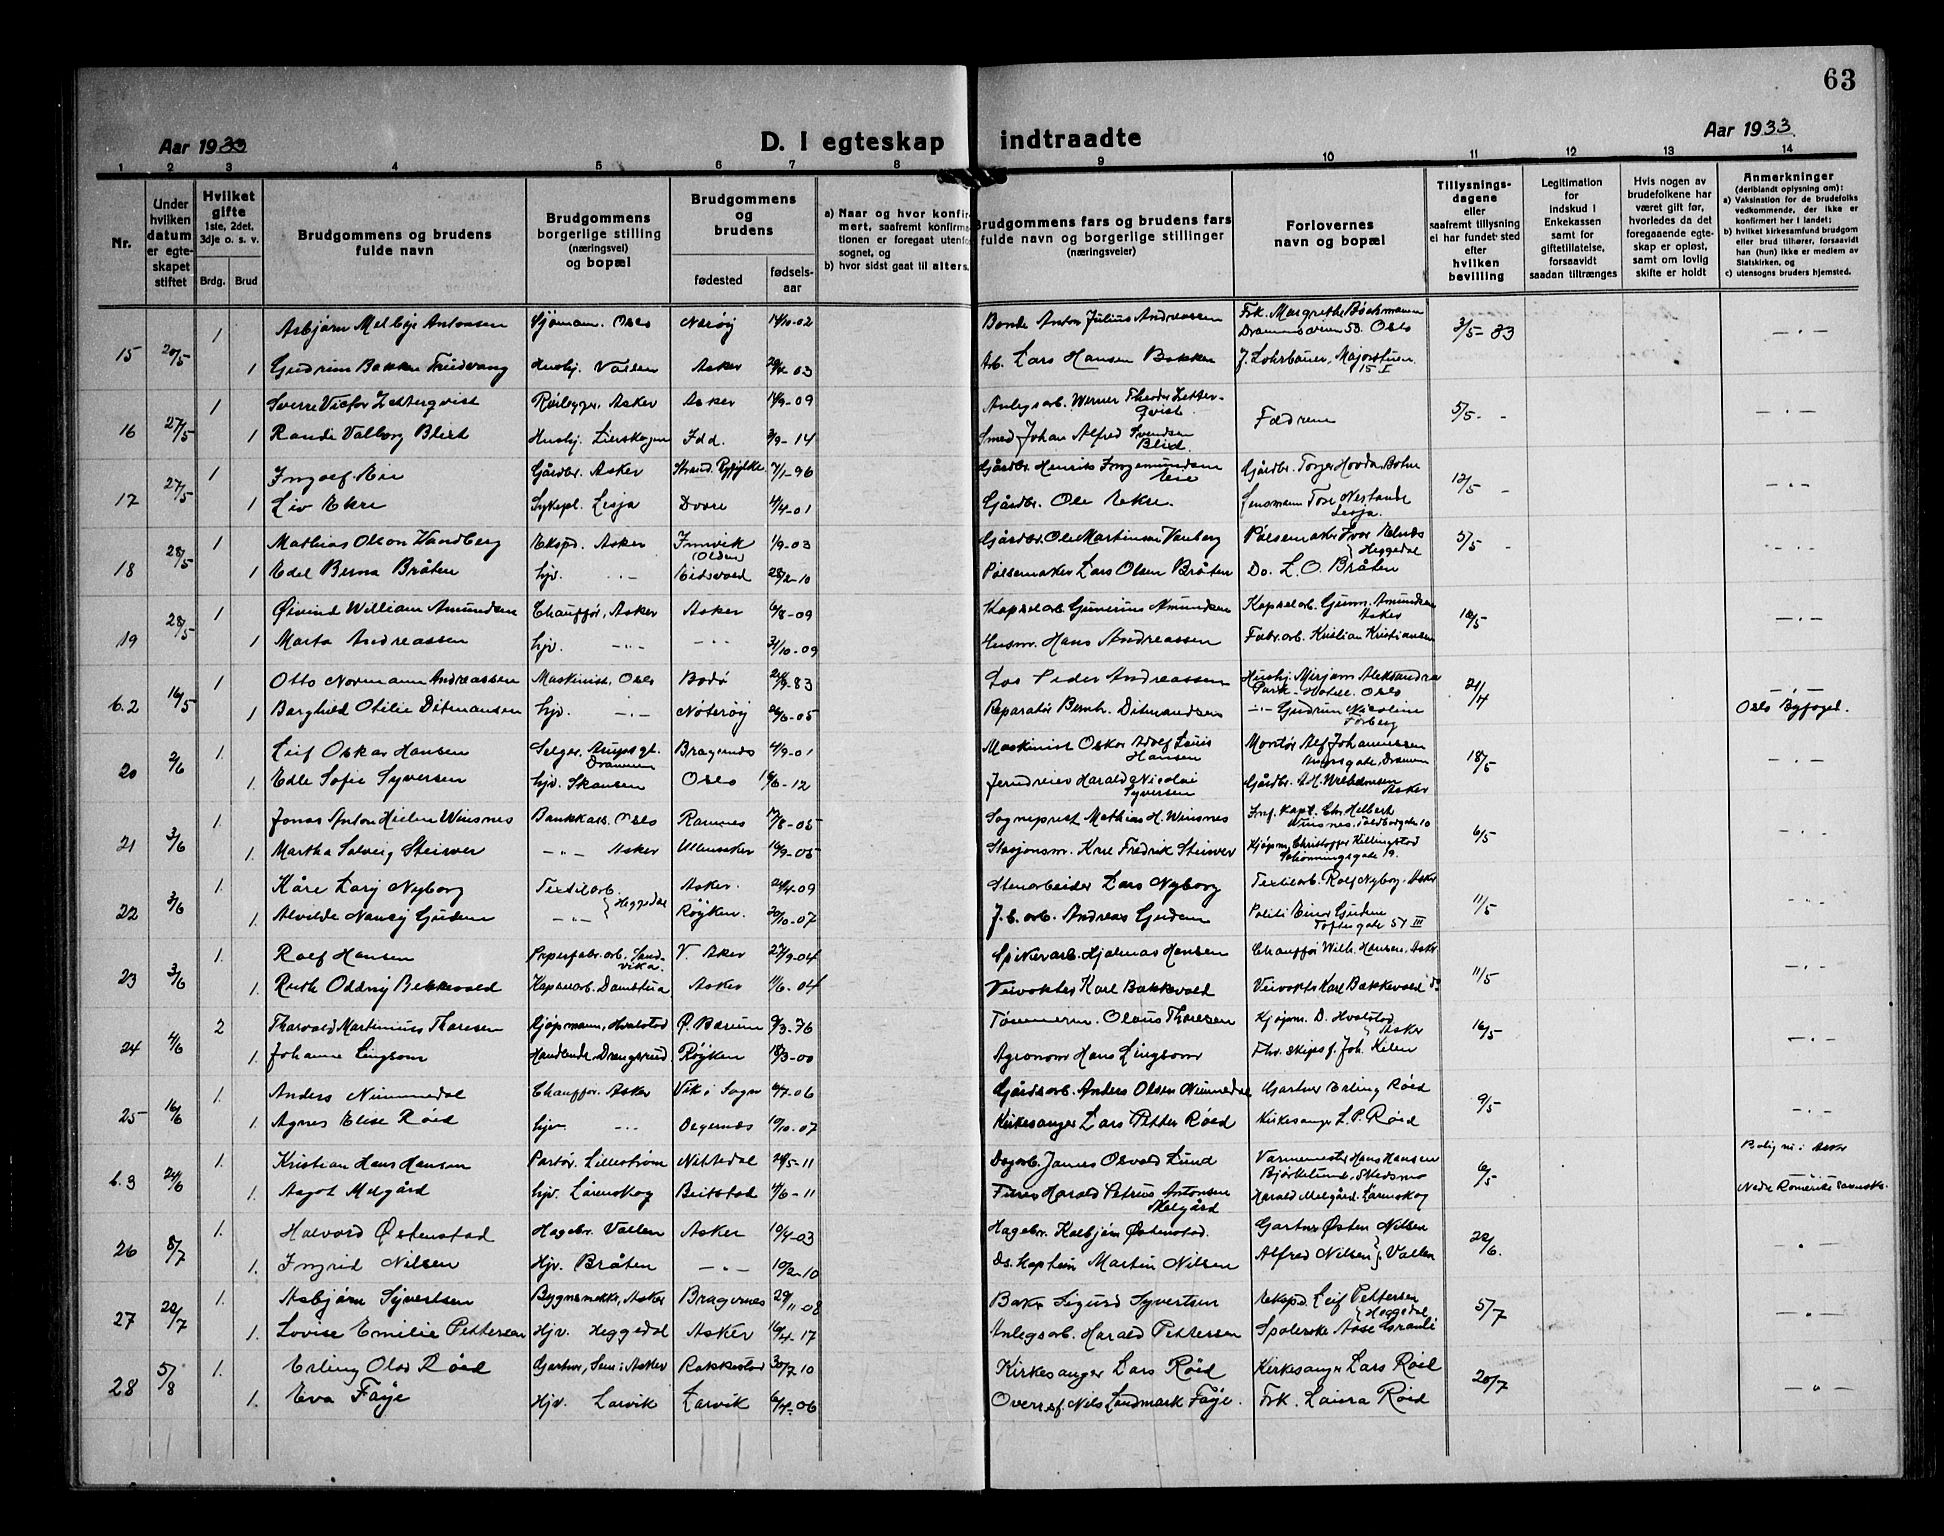 63
Aar 1933
D. I egteskap indtraadte
Aar 1933
1 2 3 4 5 6 7 8 9 10 11 12 13 14
Nr.
Under hvilken datum er egteskapet stiftet
Hvilket gifte 1ste, 2det, 3dje o. s. v.
Brdg. Brud
Brudgommens og brudens fulde navn
Brudgommens borgerlige stilling (næringsvei) og bopæl
Brudgommens og brudens
fødested
fødsels-aar
a) Naar og hvor konfir-
mert, saafremt konfirma-
tionen er foregaat utenfor
sognet, og
b) hvor sidst gaat til alters.
Brudgommens fars og brudens fars
fulde navn og borgerlige stillinger
(næringsveier)
Forlovernes
navn og bopæl
Tillysnings-
dagene
eller
saafremt tillysning
ei har fundet sted
efter
hvilken
bevilling
Legitimation
for
indskud i
Enkekassen
samt for
giftetillatelse,
forsaavidt
saadan tiltrænges
Hvis nogen av
brudefolkene har
været gift før,
hvorledes da det
foregaaende egte-
skap er opløst,
samt om lovlig
skifte er holdt
Anmerkninger
(deriblandt oplysning om):
a) Vaksination for de brudefolks
vedkommende, der ikke er
konfirmert her i landet;
b) hvilket kirkesamfund brudgom
eller brud tilhører, forsaavidt
han (hun) ikke er medlem av
Statskirken, og
c) utensogns bruders hjemsted.
1 Asbjørn Melbye Antonsen Sjømann. Oslo Nærøy 14/10-02 Bonde Anton Julius Andreassen Frk. Margrethe
Drammensveien 53. Oslo 3/5-33 -"-
15 20/5 1 Gudrun Bakken Fridvang Hushj. Vollen Asker 03 Arb. Lars Hansen Bakken J. Lohrbauer, Majorstuen
15 I
1 Sverre Victor Zetterqvist Rørbygger. Asker Asker 14/9-09 Anlegsarb. Werner Theodor Zetter-
qvist. Fædrene 5/5 - -"-
16 27/5 1 Randi Valborg Blixt Hushj. Lierskogen Idd. 3/9-14 Smed Johan Alfred Svendsen
Blid.
1 Ingolf Eie Gårdbr. Asker Strand. Ryfylke 7/1-96 Gårdbr. Henrik Ingemundsen
Eie Gårdbr. Torger Hovda 12/5 - -"-
17 27/5 1 Liv Ekre Sykepl. Lesja Dovre 4/4-01 Gårdbr. Ole Ekre. Lensmann Tore Nestande
Lesja.
1 Mathias Olson Vandberg Ekspd. Asker Innvik
(Olden) 1/9-03 Gårdbr. Ole Martinsen Pølsemaker Ivar
Heggedal 5/5 - -"-
18 28/5 1 Edel Berna Bråten hjv. -"- Eidsvold 28/2-10 Pølsemaker Lars Olsen Bråten Do. L. O. Bråten
1 Øivind William Amundsen Chauffør, Asker Asker 6/8-09 Kapselarb. Gunerius Amundsen Kapselarb. Gunn. Amundsen
Asker -"-
19 28/5 1 Marta Andreassen hjv. -"- -"- 31/10-09 Husm. Hans Andreassen Fabr.arb. Kristian Kristiansen
1 Otto Normann Andreassen Maskinist, Oslo Bodø 83 Los Peder Andreassen Hushj. Mirjam Aleksandra
Park-Hotel. Oslo 21/4 -"-
b.2 16/5 1 Borghild Otilie Ditmansen hjv. -"- Nøterøy 05 Reparatør Bernh. Ditmandsen -"- Gudrun Nicoline
Forberg Oslo Byfoged.
1. Leif Oskar Hansen Selger, gt.
Drammen Bragernes 4/9-01 Maskinist Oskar Adolf Louis
Hansen Montør Alf Johannessen
gate, Drammen 18/5 -"-
20 2/6 1. Edle Sofie Syversen hjv. Skansen Oslo 12 Harald Nicolai
Syversen Gårdbr. A.
Asker
1. Jonas Anton Hielm Winsnes Bankkass. Oslo Ramnes 05 Sogneprest Mathias H. Winsnes Inf. kapt. Chr. Helberth
Winsnes. 10 6/5 -"-
21 3/6 1. Martha Solveig Steiwer -"- Asker Ullensaker 16/9-05 Stasjonsm. Karl Fredrik Steiwer Kjøpm. Christoffer Killingstad
Schønningsgate 19.
1. Kåre Larj Nyborg Textilarb.
Heggedal Asker. 24/4-09 Stenarbeider Lars Nyborg Textilarb. Rolf Nyborg, Asker 11/5 -"-
22 3/6 1. Alvilde Nancy Gudem -"- Røyken. 20/10-07 J.b.arb. Andreas Gudem Politi Einar Gudem
Toftesgate 57 III
1. Rolf Hansen Papirfabr.arb. Sand-
vika. V. Asker 27/9-04 Spikerarb. Hjalmar Hansen Chauffør Willh. Hansen, Asker 11/5 -"-
23 3/6 1. Ruth Oddny Bekkevold Kapselarb. Damstua Asker 11/6-04 Veivokter Karl Bakkevold Veivokter Karl Bakkevold
2 Thorvald Martinius Thoresen Kjøpmann, Hvalstad Ø. Bærum 9/3-76 Tømmerm. Olaus Thoresen Kjøpm. D. Hvalstad
Asker 16/5 -"-
24 4/6 1. Johanne Lingsom Handlende, Drengsrud Røyken 18/3-00 Agronom Hans Lingsom Fhv. skipsf. Joh. Kilen
1. Anders Nummedal Chauffør. Asker Vik i Sogn 06 Gårdsarb. Anders Olsen Nummedal Gartner Erling Røed 9/5 -"-
25 16/6 1. Agnes Elise Røed hjv -"- Degernes 19/10-07 Kirkesanger Lars Petter Røed Kirkesanger L. P. Røed
1. Kristian Hans Hansen Lillestrøm Nittedal 11 James Osvald Lund Varmemester Hans Hansen
Bjørkelund, Skedsmo 6/5 Bolig nu i Asker
b.3 24/6 1. Aagot Melgård hjv. Lørenskog Beitstad 11 Harald Petrus Antonsen
Melgård Harald Melgård Lørenskog Nedre Romerike
1. Halvord Østenstad Hagebr. Vollen Asker 19/4-03 Hagebr. Kolbjørn Østenstad. Gartner Østen Nilsen
Vollen 22/6. -"-
26 8/7 1. Ingrid Nilsen Hjv. Bråten -"- 10/2-10 Ds.kaptein Martin Nilsen Alfred Nilsen
1. Asbjørn Syvertsen Bygnsnekker, Asker Bragernes 29/11-08 Baker Sigurd Syvertsen Ekspd. Leif Pettersen
Heggedal 5/7 "
27 22/7 1. Lovise Emilie Pettersen Hjv. Heggedal Asker 16/4-17 Anlegsarb. Harald Pettersen Spolerske Aase
1. Erling Olav Røed Gartner, Sem i Asker Rakkestad 30/7 10 Kirkesanger Lars Røed Kirkesanger Lars Røed 20/7 -"-
28 5/8 1. Eva Faye Hjv. Larvik Larvik 6/4-06 Nils Landmark Faye. Frk. Laura Røed